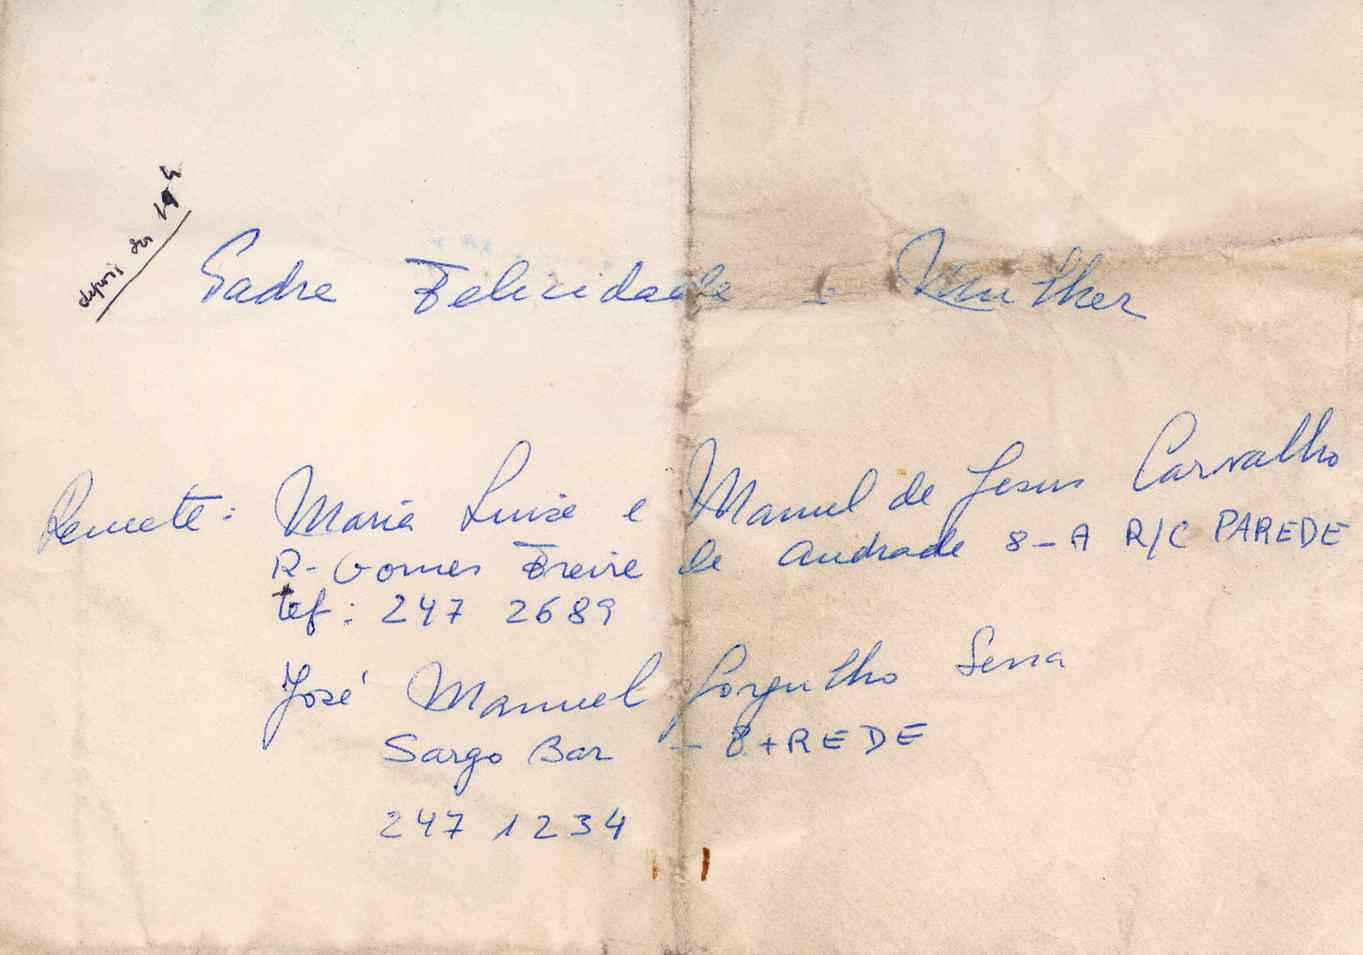 depois das 19 h
Padre Felicidade e Mulher
Remete: Maria Luisa e Manuel de Jesus Carvalho
R- Gomes Freire de Andrade 8-A R/C PAREDE
tef: 247 2689
José Manuel Gorgulho Serra
Sargo Bar - PAREDE
247 1234